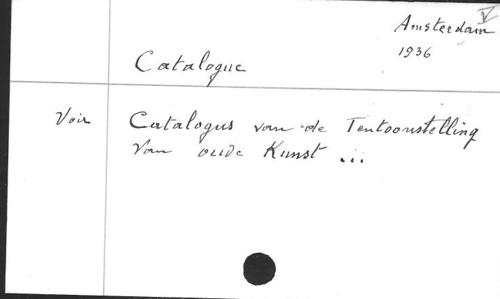 Amsterdam V
1936
Catalogue
Voir Catalogus van de Tentoonstelling
van oude Kunst ...